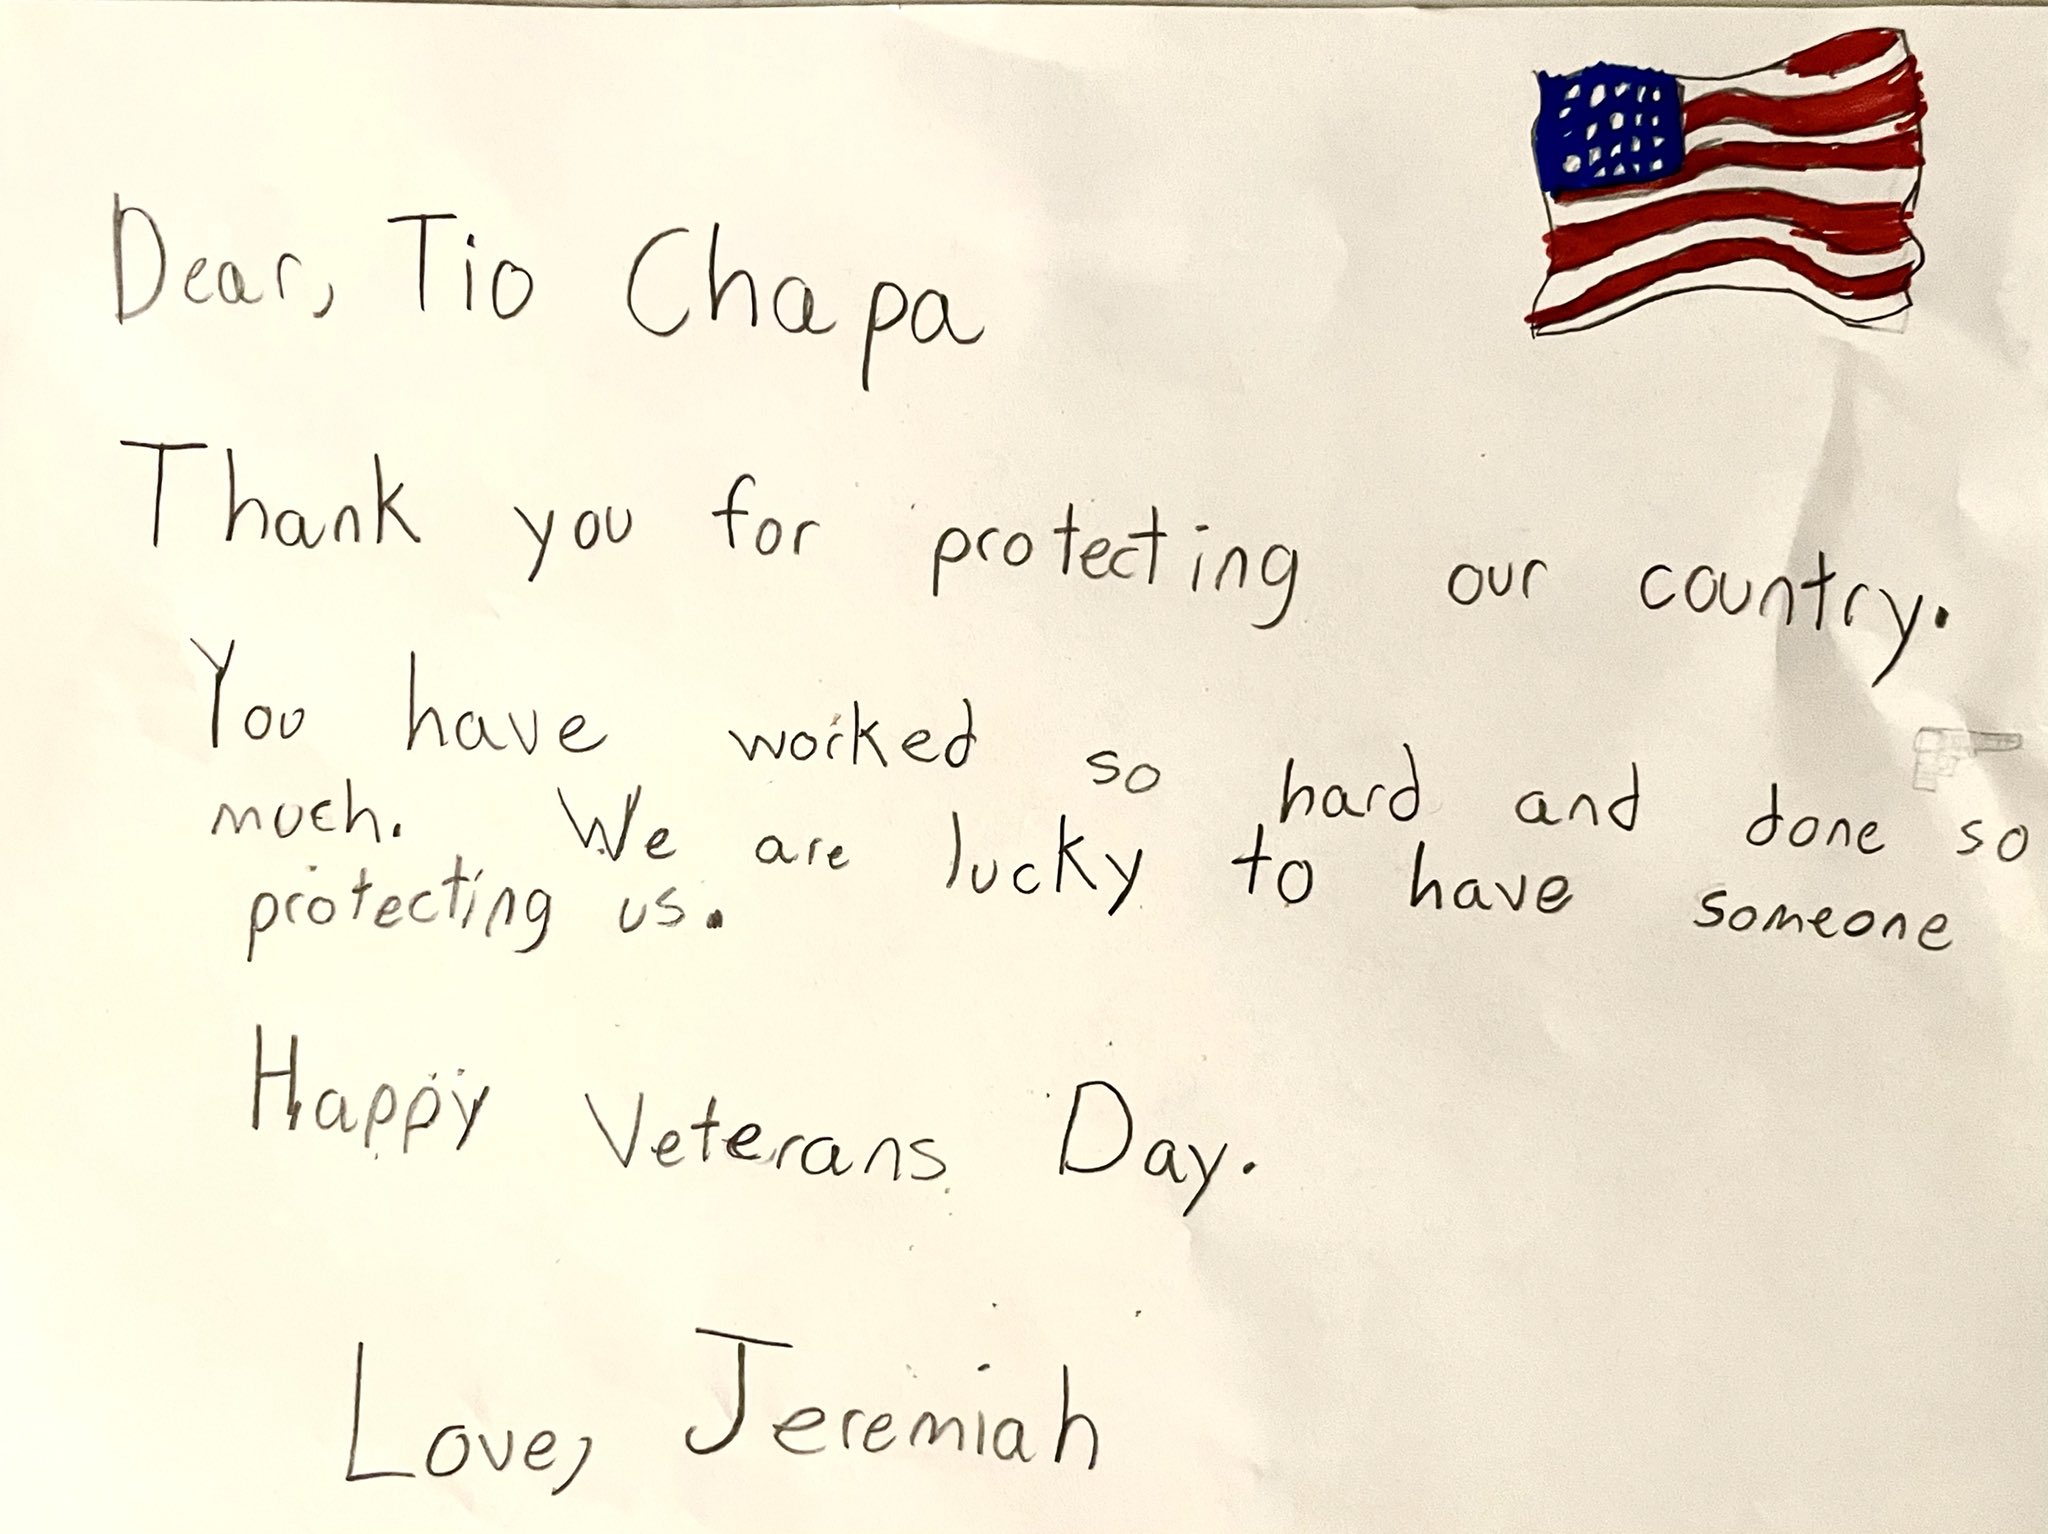 Dear, Tio Chapa
Thank you for protecting our country.
You have worked so hard and done so
much. We are lucky to have someone
protecting us.
Happy Veterans Day.
Love, Jeremiah